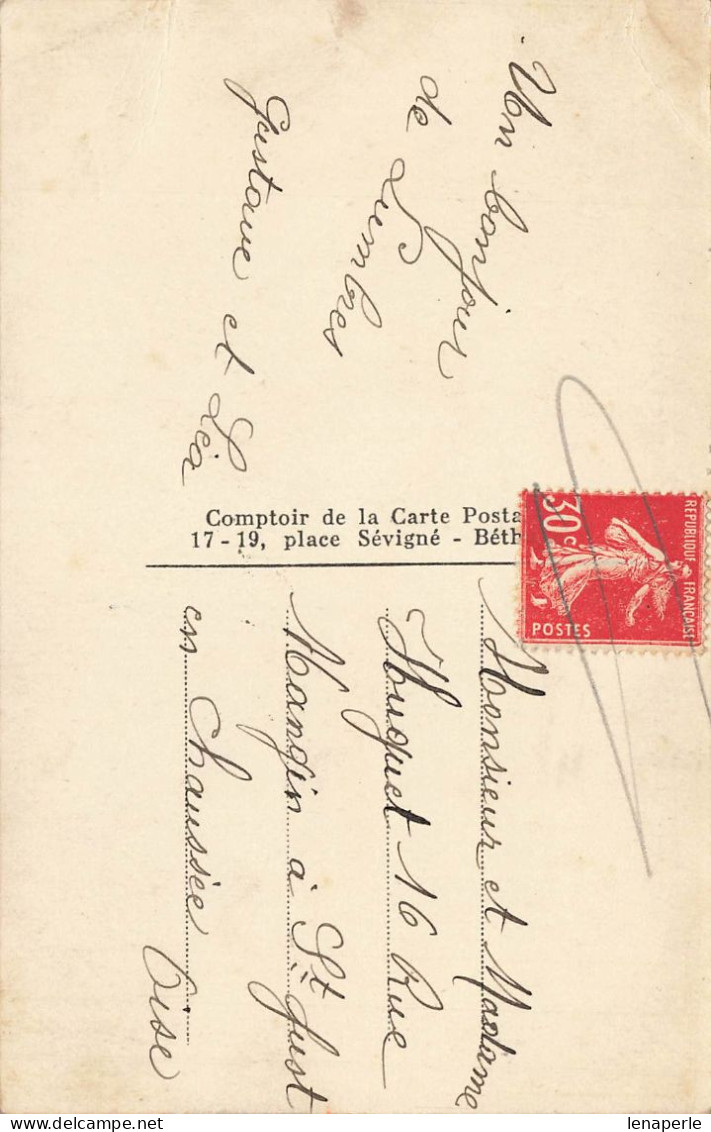 Un bonjour
de Lumbres
Gustave et Léa
Comptoir de la Carte Posta
17-19, place Sévigné - Béth
30c
POSTES
REPUBLIQUE FRANÇAISE
Monsieur et Madame
Huguet 16 Rue
Mangin à St Just
en Chaussée
Oise
delcampe.net
lenaperle